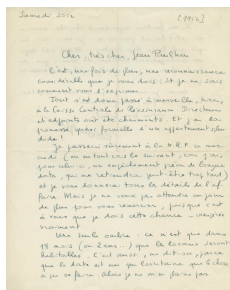 Samedi soir
[1956]
Cher, très cher, Jean Paulhan
C'est, une fois de plus, une reconnaissance
considérable que je vous dois. Et je ne sais
comment vous l'exprimer.
Tout s'est donc passé à merveille, hier,
à la Caisse Centrale de Réassurance. Directeur
et adjoints ont été charmants. Et j'ai la
promesse formelle d'un appartement splen-
dide !
Je passerai sûrement à la N.R.F. ce mer-
credi (ou en tout cas le suivant, car j'ai,
ce
date, qui me retiendra peut-être trop tard)
et je vous donnerai tous les détails de l'af-
faire. Mais je ne veux pas attendre un jour
de plus pour vous remercier, puisque c'est
à vous que je dois cette chance
vraiment.
Une seule ombre : ce n'est que dans
18 mois (ou 2 ans...) que les locaux seront
habitables. C'est aussi, me dit-on, parce
que la date est un peu lointaine que la chose
a pu se faire. Alors je ne me plains pas.